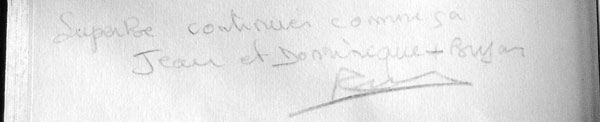 Superbe continues comme ça
Jean et Dominique +